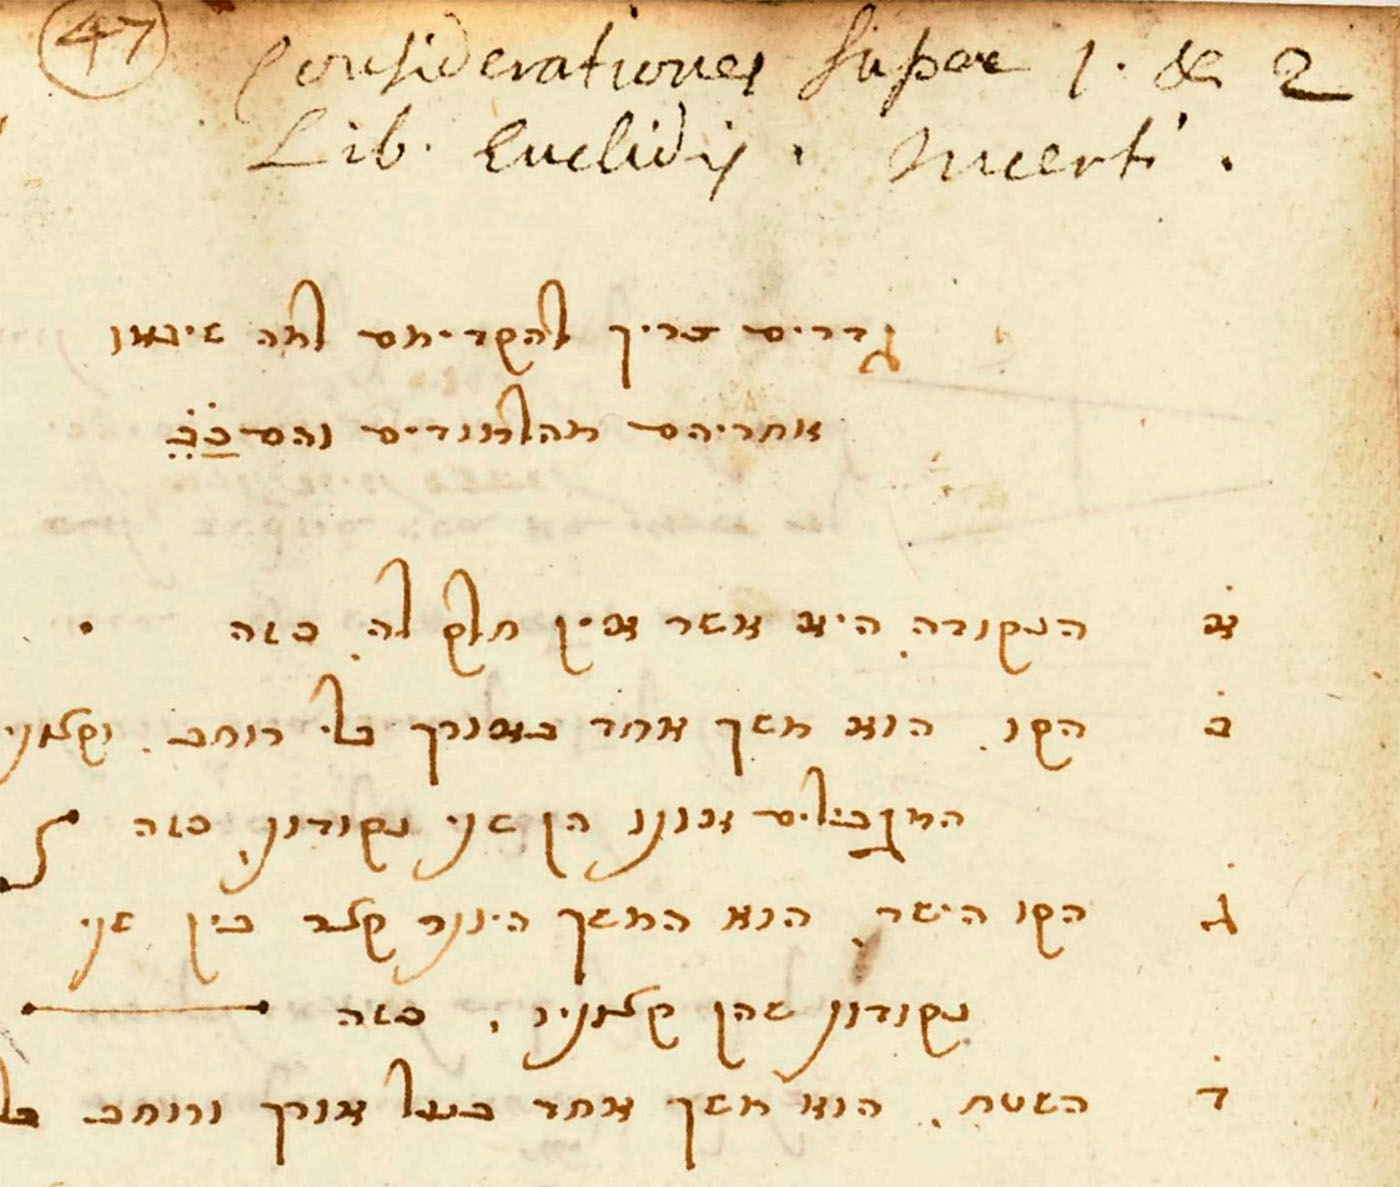 47
Considerationes super 1. & 2
Lib. Euclidis. Incerti.
גדרים צריך להקדימם למה שיבאו
אחריהם מהלמודים והם
א הנקודה היא אשר אין חלק לה כזה
ב הקו הוא משך אחד באורך בלי רוחב. וקצותיו
המגבילים אותו הן שתי נקודות כזה
ג הקו הישר הוא המשך היותר קצר בין שתי
נקודות שהן קצותיו, כזה
ד השטח. הוא משך אחד בעל אורך ורוחב